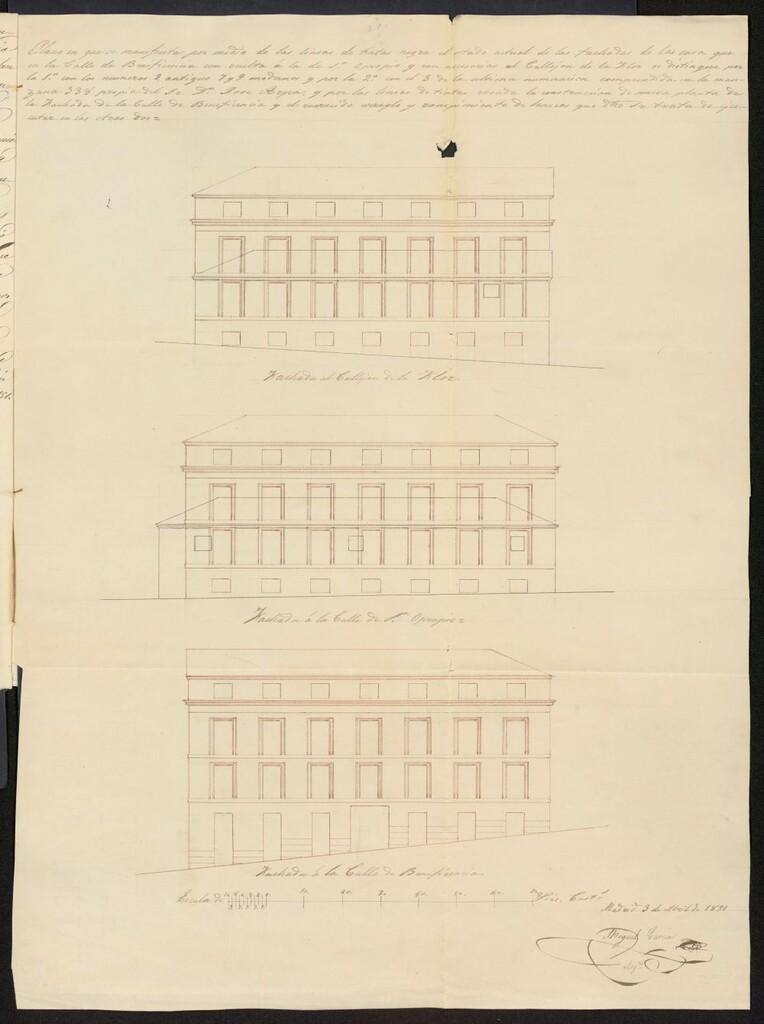 Plano en que se manifiesta por medio de las lineas de tintas negra el estado actual de las fachadas de las casas que
en la Calle de Beneficencia con vuelta á la de Sn. Opropio y con accesorias al Callejon de la Flor se distingue por
la 1a. con los numeros 2 antiguo 7 y 9 moderno y por la 2a. con el 3 de la ultima numeracion comprendida en la man-
zana 338 propia del Sr. Dn. Jose y por las lineas de tintas la construccion de nueva planta de
la Fachada de la Calle de Beneficencia y el arreglo y rompimiento de huecos que dho Sr trata de ejecu-
tar en las otras dos
Fachada al Callejon de la Flor
Fachada á la Calle de Sn. Opropio
Fachada á la Calle de Beneficencia
Escala de 10. 20. 30. 40. 50. 60. Pies. Castos.
Madrid 3 de Abril de 1851
Miguel Garcia